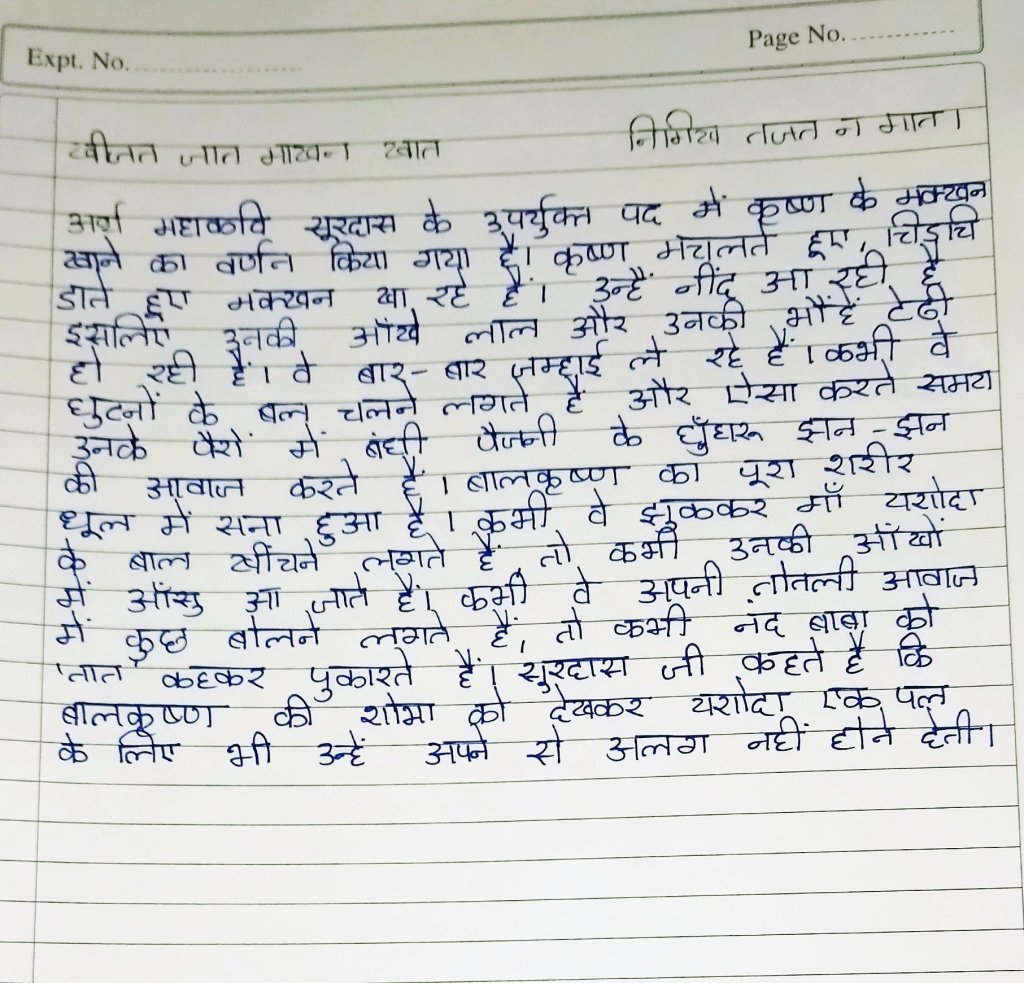 Expt. No.
Page No.
खीजत जात माखन खात निमिख तजत न मात।
अर्थ महाकवि सूरदास के उपर्युक्त पद में कृष्ण के मक्खन
खाने का वर्णन किया गया है। कृष्ण मचालते हुए, चिड़चि
डाते हुए मक्खन खा रहे हैं। उन्हें नींद आ रही है
इसलिए उनकी आँखे लाल और उनकी भौंहें टेढी
हो रही हैं। वे बार-बार जम्हाई ले रहे हैं। कभी वे
घुटनों के बल चलने लगते हैं और ऐसा करते समय
उनके पैरों में बंधी पैजनी के घुँघरू झन-झन
की आवाज करते हैं। बालकृष्ण का पूरा शरीर
धूल में सना हुआ है। कभी वे झुककर माँ यशोदा
के बाल खींचने लगते हैं, तो कभी उनकी आँखों
में आँसु आ जाते हैं। कभी वे अपनी तोतली आवाज
में कुछ बोलने लगते हैं, तो कभी नंद बाबा को
'तात' कहकर पुकारते हैं। सुरदास जी कहते हैं कि
बालकृष्ण की शोभा को देखकर यशोदा एक पल
के लिए भी उन्हें अपने से अलग नहीं होने देती।